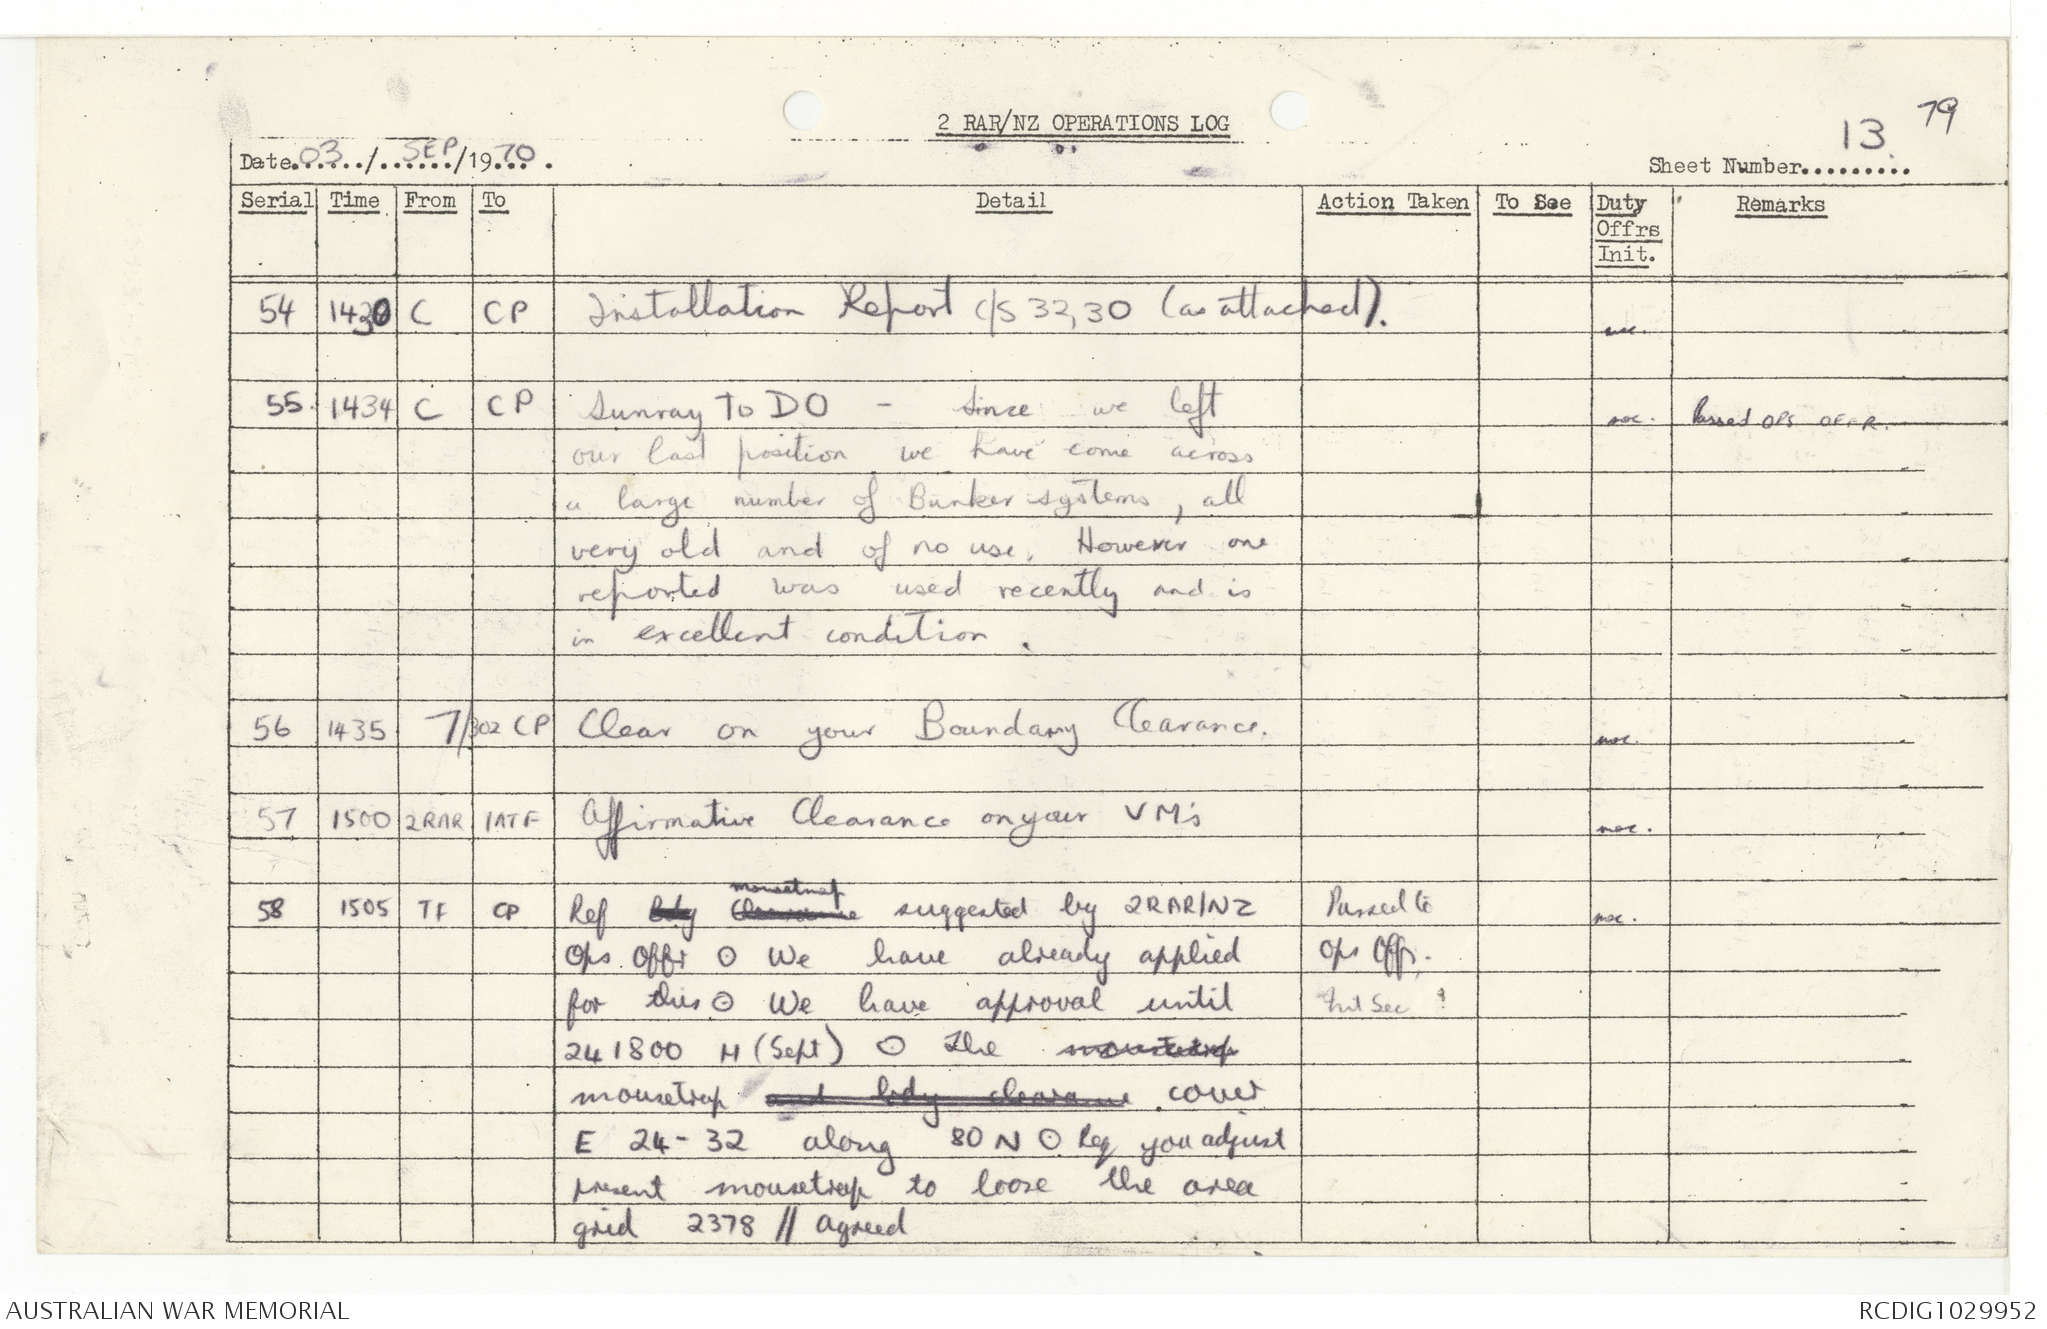 79
2 RAR/NZ OPERATIONS LOG
13
Date 03 / SEP /1970.
Sheet Number.........
Serial Time From To Detail Action Taken To See Duty Offrs Init. Remarks
54 1430 C CP Installation Report C/S 32,30 (as attached).
55. 1434 C CP Sunray To DO - Since we left Passed OPS OFFR.
our last position we have come across
a large number of Bunker systems, all
very old and of no use. However one
reported was used recently and is
in excellent condition.
56 1435 7/302 CP Clear on your Boundary Clearance.
57 1500 2RAR 1ATF Affirmative Clearance on your VM's
mousetrap
58 1505 TF CP Ref Bdy Clearance suggested by 2RAR/NZ Passed to
Ops Offr ⊙ We have already applied Ops Offr.
for this ⊙ We have approval until Int Sec
241800 H (Sept) ⊙ The mousetrap
mousetrap and bdy clearance cover
E 24-32 along 80 N ⊙ Req you adjust
present mousetrap to loose the area
grid 2378 // agreed
AUSTRALIAN WAR MEMORIAL RCDIG1029952